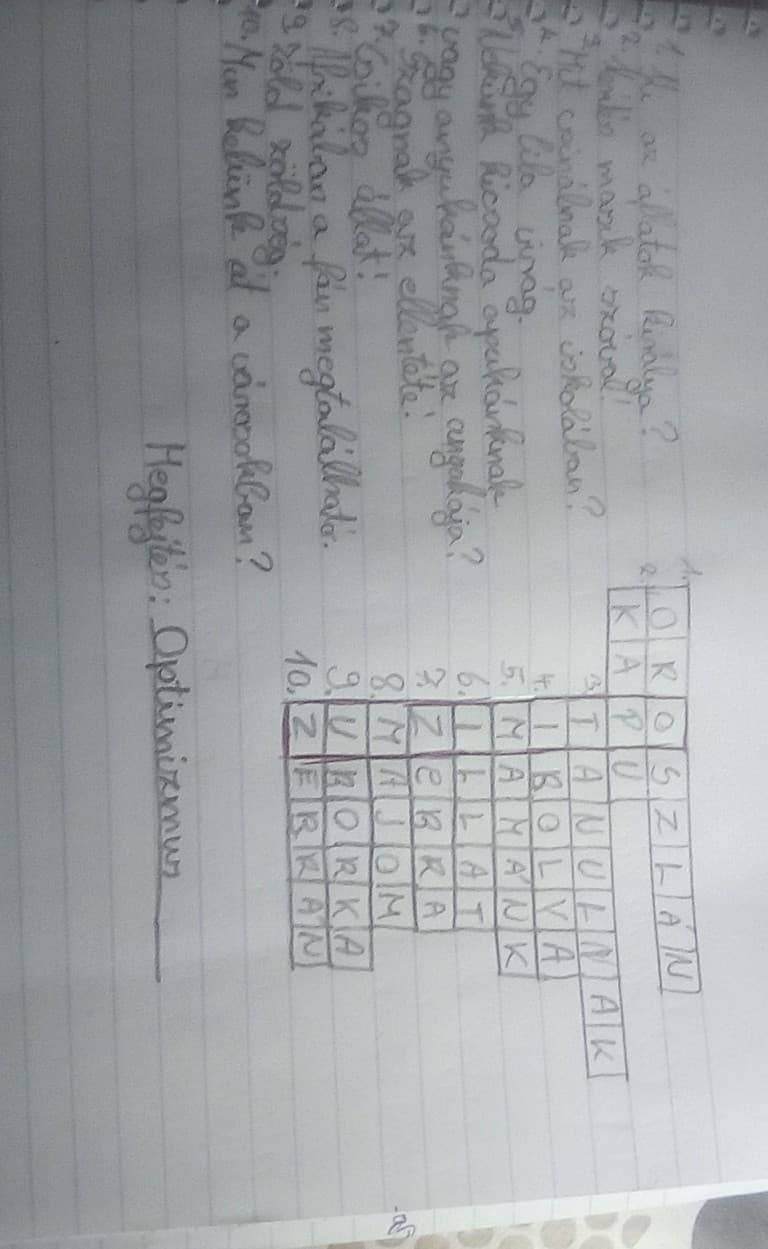 1. Ki az állatok királya?
2. Kinlás másik szóval!
3. Mit csinálnak az iskolában?
4. Egy lila virág.
5. Nekünk kicsoda apukánknak
vagy anyukánknak az anyukája?
6. Szagnak az ellentéte!
7. Csíkos állat!
8. Afrikában a fán megtalálható.
9. Zöld zöldség.
10. Min kelünk át a városokban?
1. OROSZLÁN
2. KAPU
3. TANULNAK
4. IBOLYA
5. MAMÁNK
6. ILLAT
7. ZEBRA
8. MAJOM
9. UBORKA
10. ZEBRÁN
Megfejtés: Optimizmus